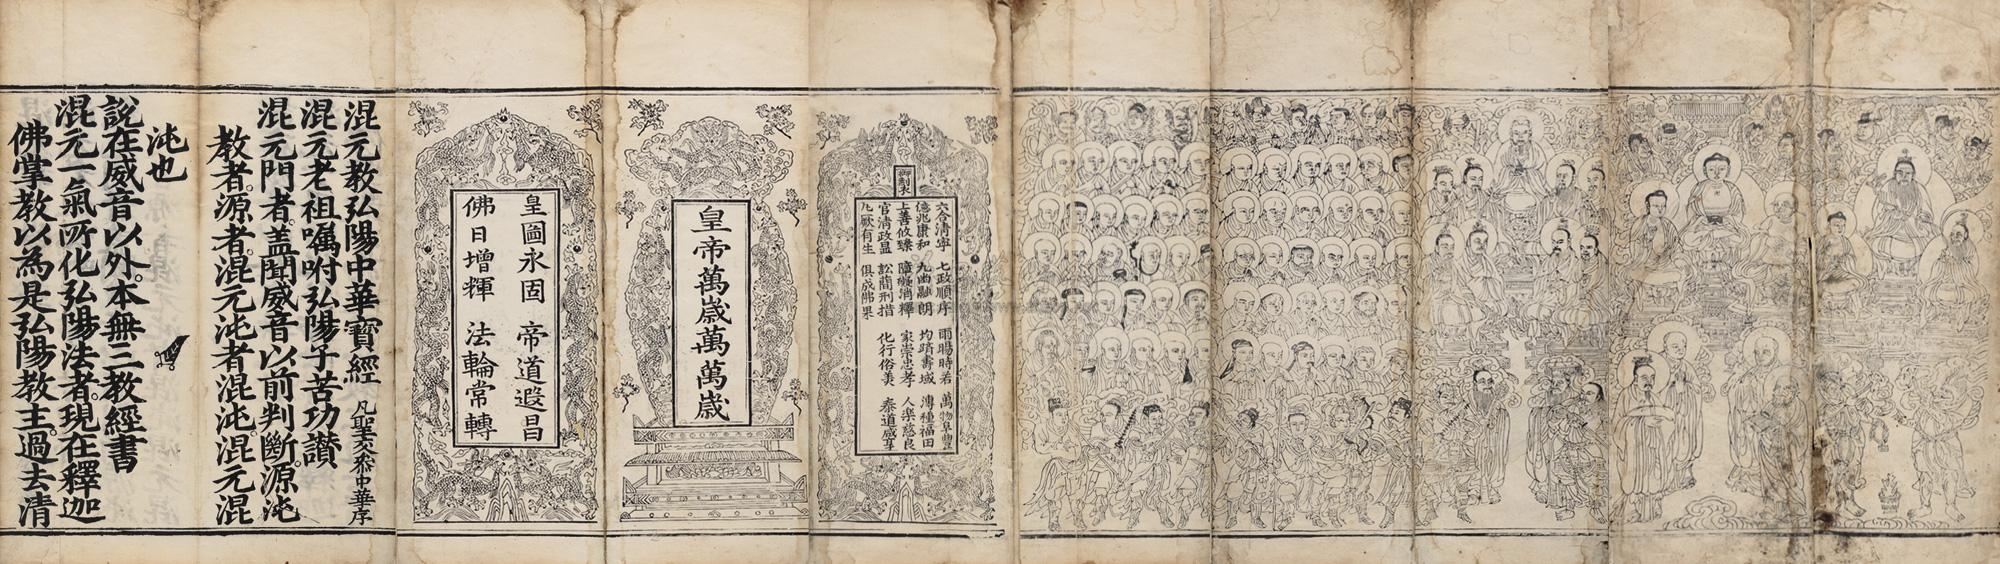 御製
六合清寧 七政順序 雨暘時若 萬物阜豐
億兆康和 九幽融朗 均躋壽域 溥種福田
上善攸臻 障礙消釋 家崇忠孝 人楽慈良
官清政显 訟簡刑措 化行俗美 泰道咸亨
凡厥有生 俱成佛果
皇帝萬歲萬萬歲
皇圖永固 帝道遐昌
佛日增輝 法輪常轉
混元教弘陽中華寶經 凡聖交叅中華序
混元老祖囑咐弘陽子苦功讃
混元門者盖聞威音以前判斷。源沌
教者。源者混元沌者混沌。混元混
沌也
說在威音以外。本無三教經書
混元一氣所化弘陽法者。現在釋迦
佛掌教以為是弘陽教主。過去清